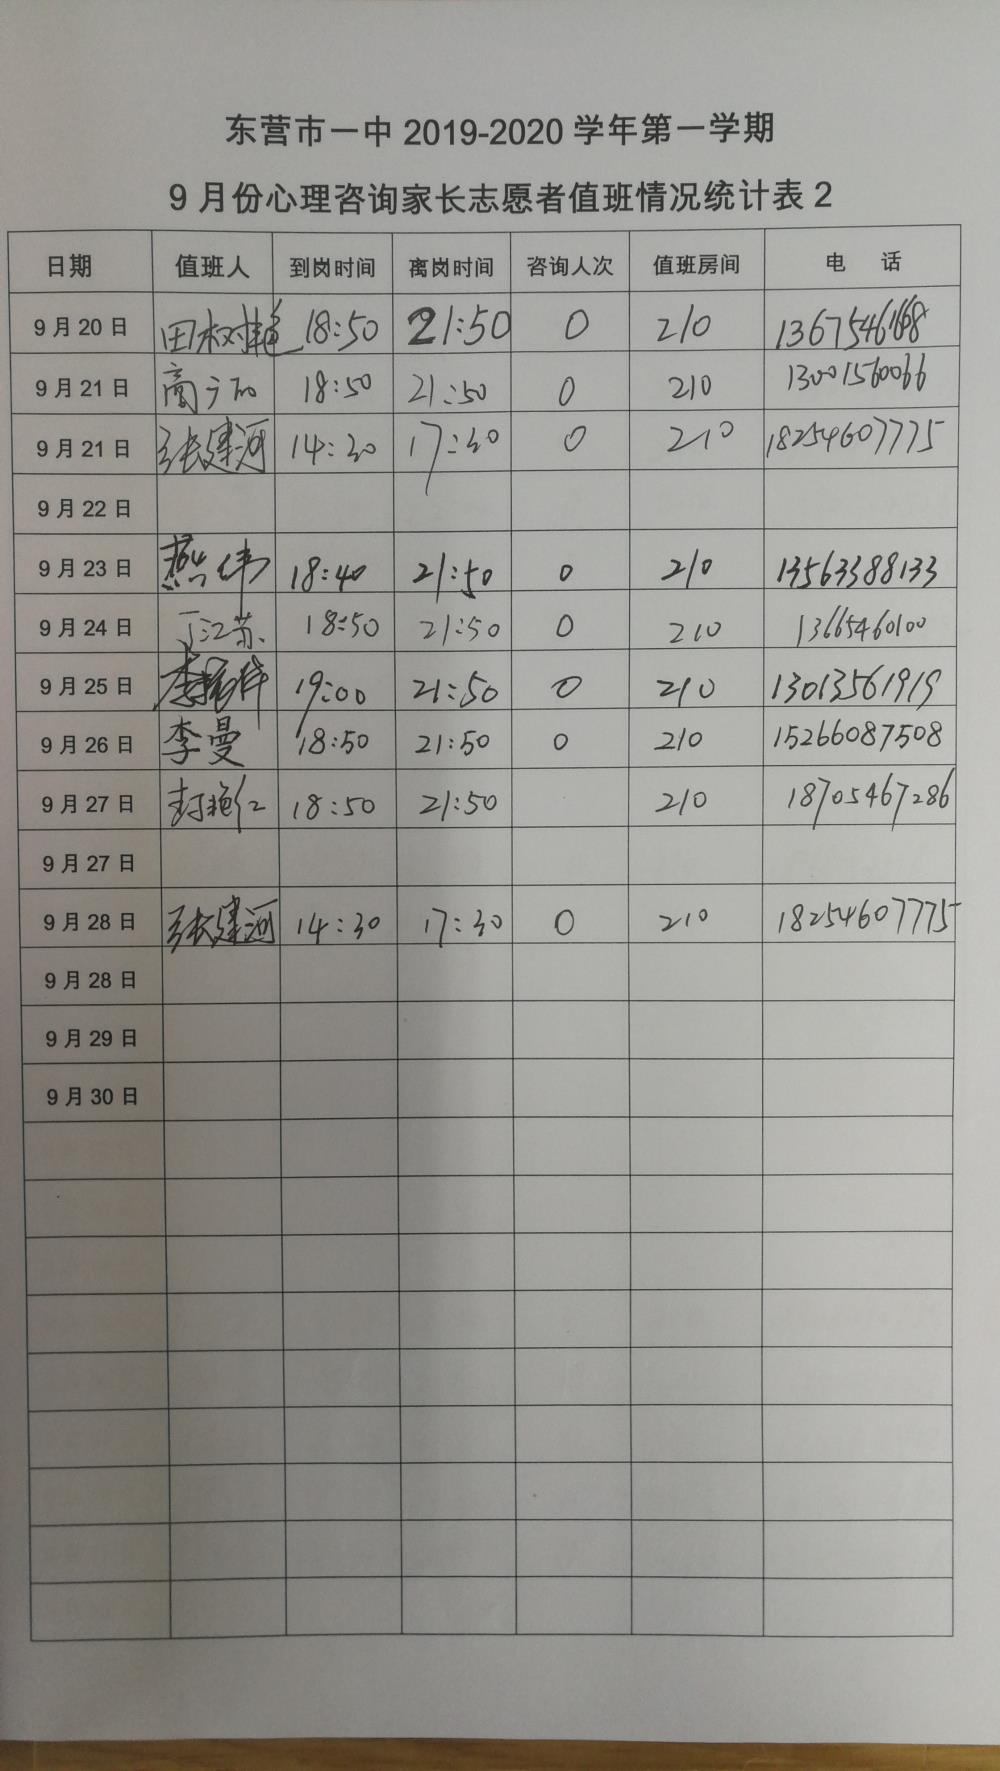 东营市一中 2019-2020 学年第一学期
9 月份心理咨询家长志愿者值班情况统计表 2
日期 值班人 到岗时间 离岗时间 咨询人次 值班房间 电 话
9 月 20 日 田树艳 18:50 21:50 0 210
9 月 21 日 18:50 21:50 0 210 13001560066
9 月 21 日 张建河 14:30 17:30 0 210 18254607775
9 月 22 日
9 月 23 日 燕伟 18:40 21:50 0 210 13563388133
9 月 24 日 丁江苏 18:50 21:50 0 210 13665460100
9 月 25 日 19:00 21:50 0 210 13013561919
9 月 26 日 李曼 18:50 21:50 0 210 15266087508
9 月 27 日 18:50 21:50 210 18705467286
9 月 27 日
9 月 28 日 张建河 14:30 17:30 0 210 18254607775
9 月 28 日
9 月 29 日
9 月 30 日